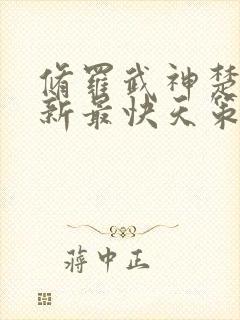 脩羅武神楚
新最快天策
蔣中正